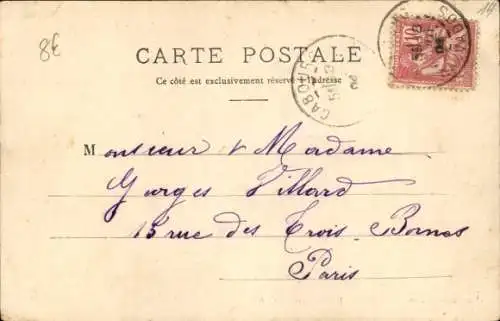 8€
CARTE POSTALE
Ce côté est exclusivement réservé à l'adresse
CABOURG
10
Monsieur & Madame
Georges Villard
13 rue des Trois Bornes
Paris